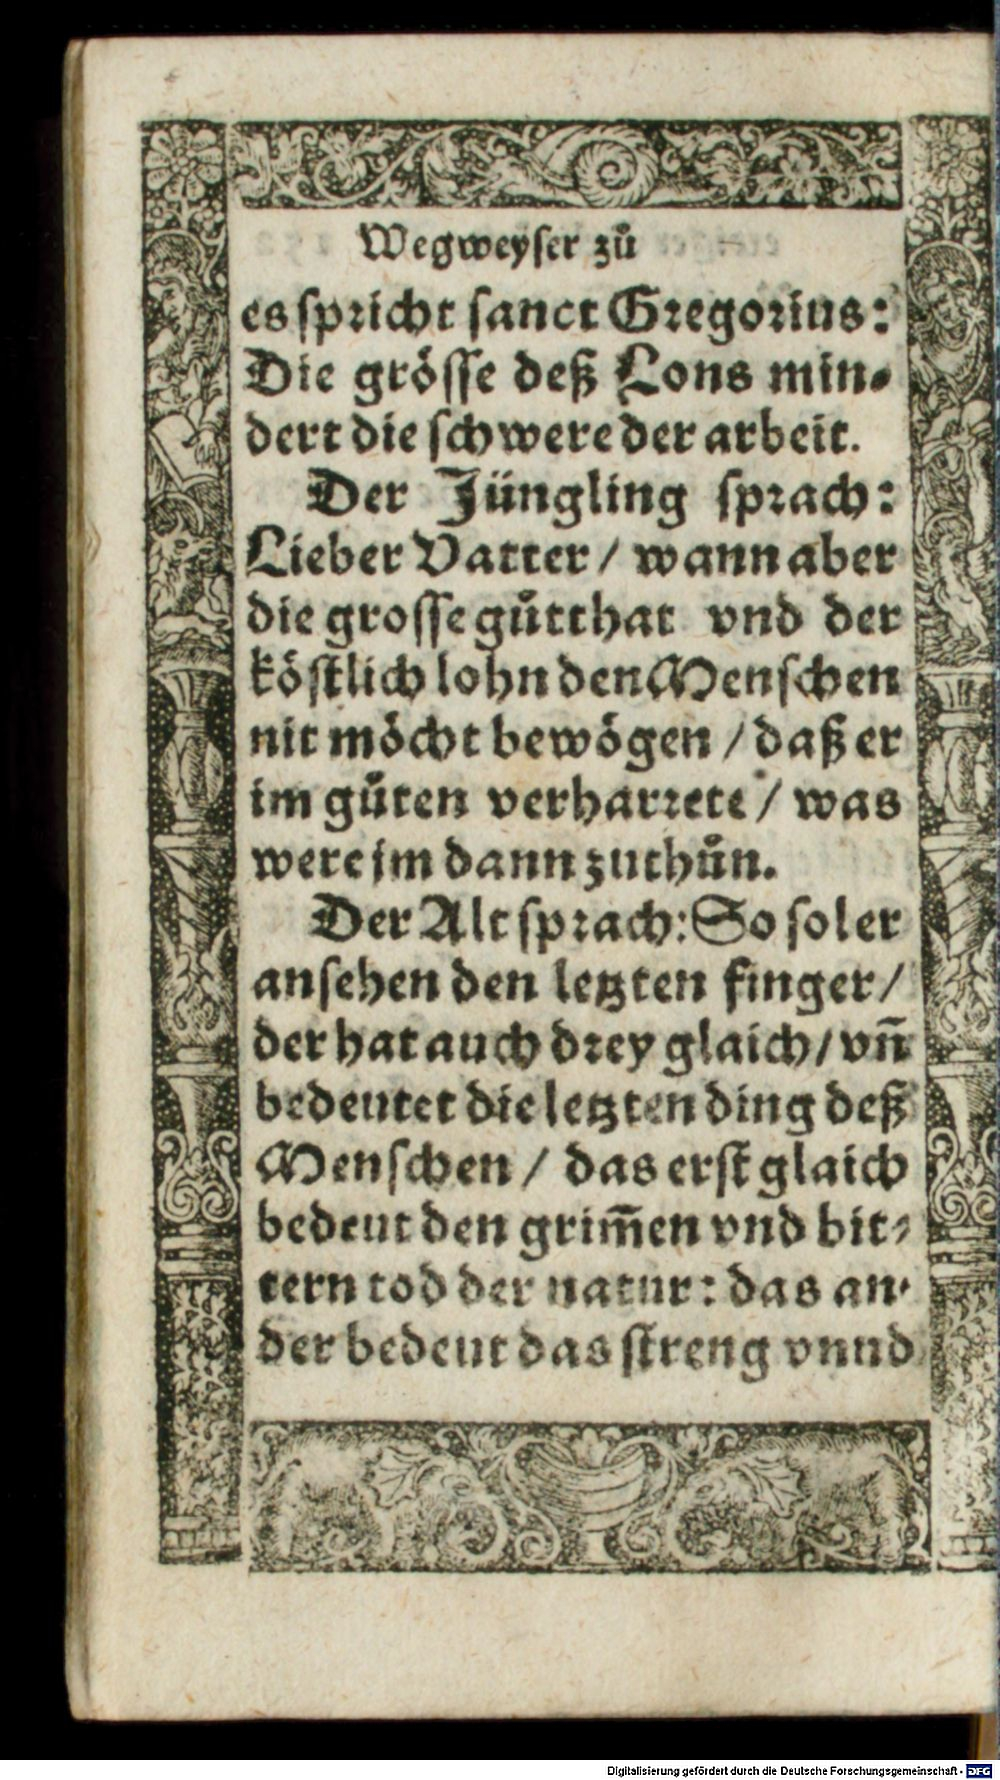 Wegweyser zů
es spricht sanct Gregorius:
Die grösse deß Lons min-
dert die schwere der arbeit.
Der Jüngling sprach:
Lieber Vatter / wann aber
die grosse gůtthat vnd der
köstlich lohn den Menschen
nit möcht bewögen / daß er
im gůten verharrete / was
were jm dann zuthůn.
Der Alt sprach: So sol er
ansehen den letzten finger /
der hat auch drey glaich / vñ
bedeutet die letzten ding deß
Menschen / das erst glaich
bedeut den grim̃en vnd bit-
tern tod der natur: das an-
der bedeut das streng vnnd
Digitalisierung gefördert durch die Deutsche Forschungsgemeinschaft - DFG